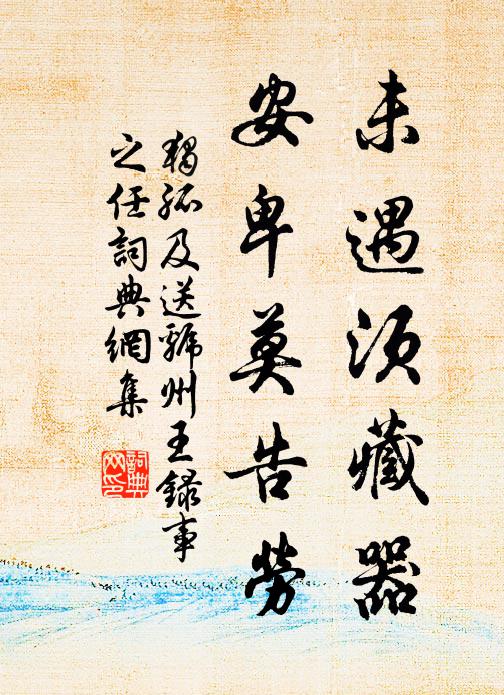 未遇須藏器
安卑莫告勞
獨孤及送虢州王錄事
之任詞典網集
詞典
网印